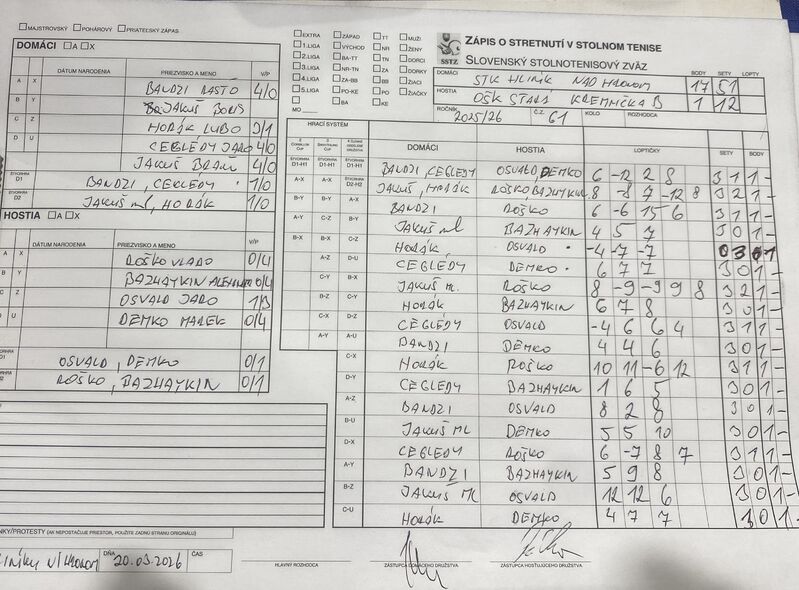 MAJSTROVSKÝ POHÁROVÝ PRIATEĽSKÝ ZÁPAS
DOMÁCI A X
DÁTUM NARODENIA PRIEZVISKO A MENO V/P
A X BANDZI RASTO 4/0
B Y JAKUŠ BORIS
C Z HORÁK ĽUBO 3/1
D U CEGLÉDY JARO 4/0
JAKUŠ BRAŇ 4/0
D1 BANDZI, CEGLÉDY 1/0
D2 JAKUŠ ml, HORÁK 1/0
HOSTIA A X
DÁTUM NARODENIA PRIEZVISKO A MENO V/P
A X ROŠKO VLADO 0/4
B Y BAZHAYKIN 0/4
C Z OSVALD JARO 1/3
D U DEMKO MAREK 0/4
D1 OSVALD, DEMKO 0/1
D2 ROŠKO, BAZHAYKIN 0/1
(AK NEPOSTAČUJE PRIESTOR, POUŽITE ZADNÚ STRANU ORIGINÁLU)
DŇA 20.03.2026 ČAS
EXTRA ZÁPAD TT MUŽI
1.LIGA VÝCHOD NR ŽENY
2.LIGA BA-TT TN DORCI
3.LIGA NR-TN ZA DORKY
4.LIGA ZA-BB BB ŽIACI
5.LIGA PO-KE PO ŽIAČKY
BA KE
MO
SSTZ
ZÁPIS O STRETNUTÍ V STOLNOM TENISE
SLOVENSKÝ STOLNOTENISOVÝ ZVÄZ
BODY SETY LOPTY
DOMÁCI STK HLINÍK NAD HRONOM 17 51
HOSTIA OŠK STARÁ KREMNIČKA B 1 12
ROČNÍK 2025/26 Č.Z. 61 KOLO ROZHODCA
HRACÍ SYSTÉM
DOMÁCI HOSTIA LOPTIČKY SETY BODY
D1-H1 D1-H1 D1-H1 BANDZI, CEGLÉDY OSVALD DEMKO 6 -12 2 8 3 1 1 -
A-X A-X D2-H2 JAKUŠ, HORÁK ROŠKO, BAZHAYKIN 8 -8 7 -12 8 3 2 1 -
B-Y B-Y A-X BANDZI ROŠKO 6 -6 15 6 3 1 1 -
A-Y C-Z B-Y JAKUŠ ml BAZHAYKIN 4 5 7 3 0 1 -
B-X B-X C-Z HORÁK OSVALD -4 -7 -7 0 3 - 1
A-Z D-U CEGLÉDY DEMKO 6 7 7 3 0 1 -
C-Y B-X JAKUŠ m. ROŠKO 8 -9 -9 9 8 3 2 1 -
B-Z C-Y HORÁK BAZHAYKIN 6 7 8 3 0 1 -
C-X D-Z CEGLÉDY OSVALD -4 6 6 4 3 1 1 -
A-Y A-U BANDZI DEMKO 4 4 6 3 0 1 -
C-X HORÁK ROŠKO 10 11 -6 12 3 1 1 -
D-Y CEGLÉDY BAZHAYKIN 1 6 5 3 0 1 -
A-Z BANDZI OSVALD 8 2 8 3 0 1 -
B-U JAKUŠ ML DEMKO 5 5 10 3 0 1 -
D-X CEGLÉDY ROŠKO 6 -7 8 7 3 1 1 -
A-Y BANDZI BAZHAYKIN 5 9 8 3 0 1 -
B-Z JAKUŠ ML OSVALD 12 12 6 3 0 1 -
C-U HORÁK DEMKO 4 7 7 3 0 1 -
HLAVNÝ ROZHODCA ZÁSTUPCA DOMÁCEHO DRUŽSTVA ZÁSTUPCA HOSŤUJÚCEHO DRUŽSTVA